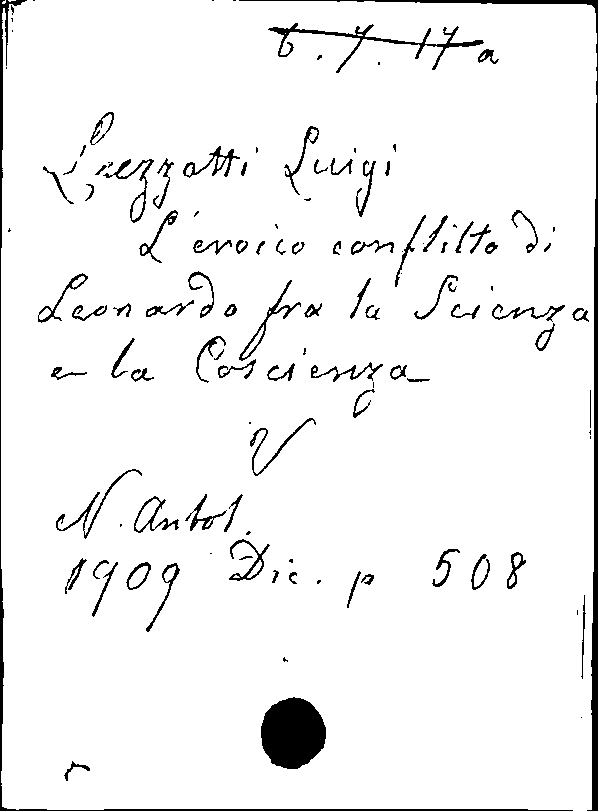 6.7.17a
Luzzatti Luigi
L'eroico conflitto di
Leonardo fra la Scienza
e la Coscienza
V
N. Antol.
1909 Dic. p 508